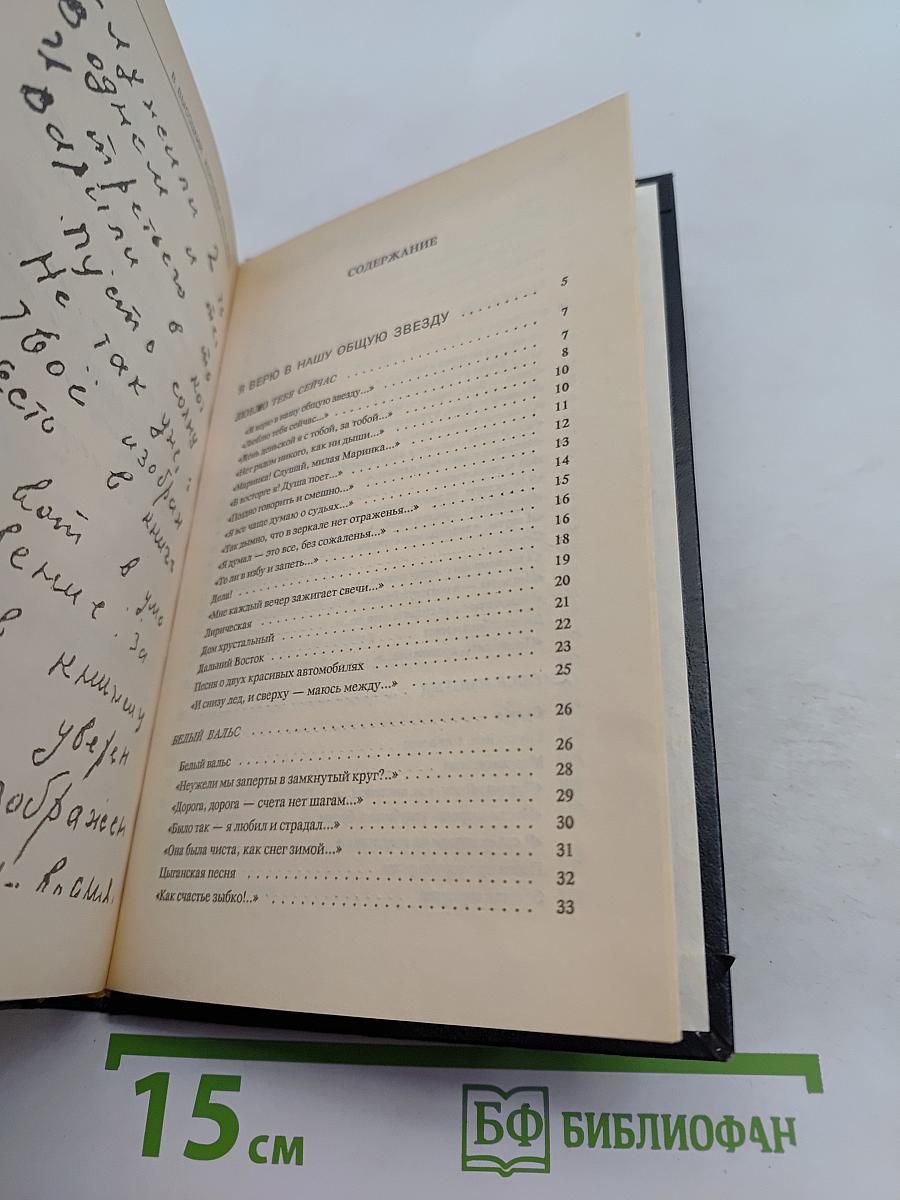 жили и
одном
третьего в
варили
пусто
Не так уж
твоё
вот в
книжку
уверен
СОДЕРЖАНИЕ
Я ВЕРЮ В НАШУ ОБЩУЮ ЗВЕЗДУ . . . . . . . . . 5
ЛЮБЛЮ ТЕБЯ СЕЙЧАС . . . . . . . . . 7
«Я верю в нашу общую звезду...» . . . . . . . . . 7
«Люблю тебя сейчас...» . . . . . . . . . 8
«День-деньской я с тобой, за тобой...» . . . . . . . . . 10
«Нет рядом никого, как ни дыши...» . . . . . . . . . 10
«Маринка! Слушай, милая Маринка...» . . . . . . . . . 11
«В восторге я! Душа поет...» . . . . . . . . . 12
«Поздно говорить и смешно...» . . . . . . . . . 13
«Я все чаще думаю о судьях...» . . . . . . . . . 14
«Так дымно, что в зеркале нет отраженья...» . . . . . . . . . 15
«Я думал — это все, без сожаленья...» . . . . . . . . . 16
«То ли в избу и запеть...» . . . . . . . . . 16
Дела! . . . . . . . . . 18
«Мне каждый вечер зажигает свечи...» . . . . . . . . . 19
Лирическая . . . . . . . . . 20
Дом хрустальный . . . . . . . . . 21
Дальний Восток . . . . . . . . . 22
Песня о двух красивых автомобилях . . . . . . . . . 23
«И снизу лед, и сверху — маюсь между...» . . . . . . . . . 25
БЕЛЫЙ ВАЛЬС . . . . . . . . . 26
Белый вальс . . . . . . . . . 26
«Неужели мы заперты в замкнутый круг?..» . . . . . . . . . 28
«Дорога, дорога — счета нет шагам...» . . . . . . . . . 29
«Было так — я любил и страдал...» . . . . . . . . . 30
«Она была чиста, как снег зимой...» . . . . . . . . . 31
Цыганская песня . . . . . . . . . 32
«Как счастье зыбко!..» . . . . . . . . . 33
15 см
БФ БИБЛИОФАН